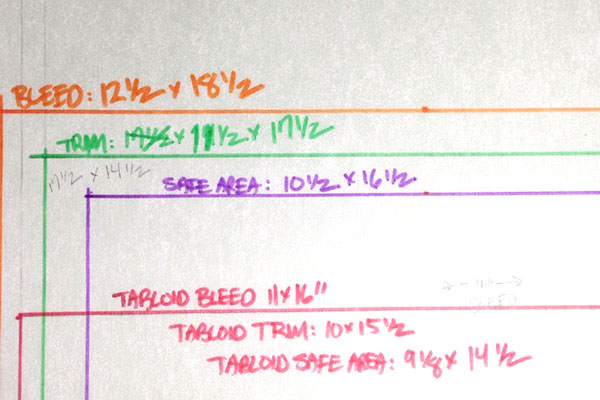 BLEED: 12 1/2 x 18 1/2
TRIM: 17 1/2 x 11 1/2 x 17 1/2
17 1/2 x 14 1/2
SAFE AREA: 10 1/2 x 16 1/2
TABLOID BLEED 11x16"
BLEED
TABLOID TRIM: 10x15 1/2
TABLOID SAFE AREA: 9 1/8 x 14 1/2